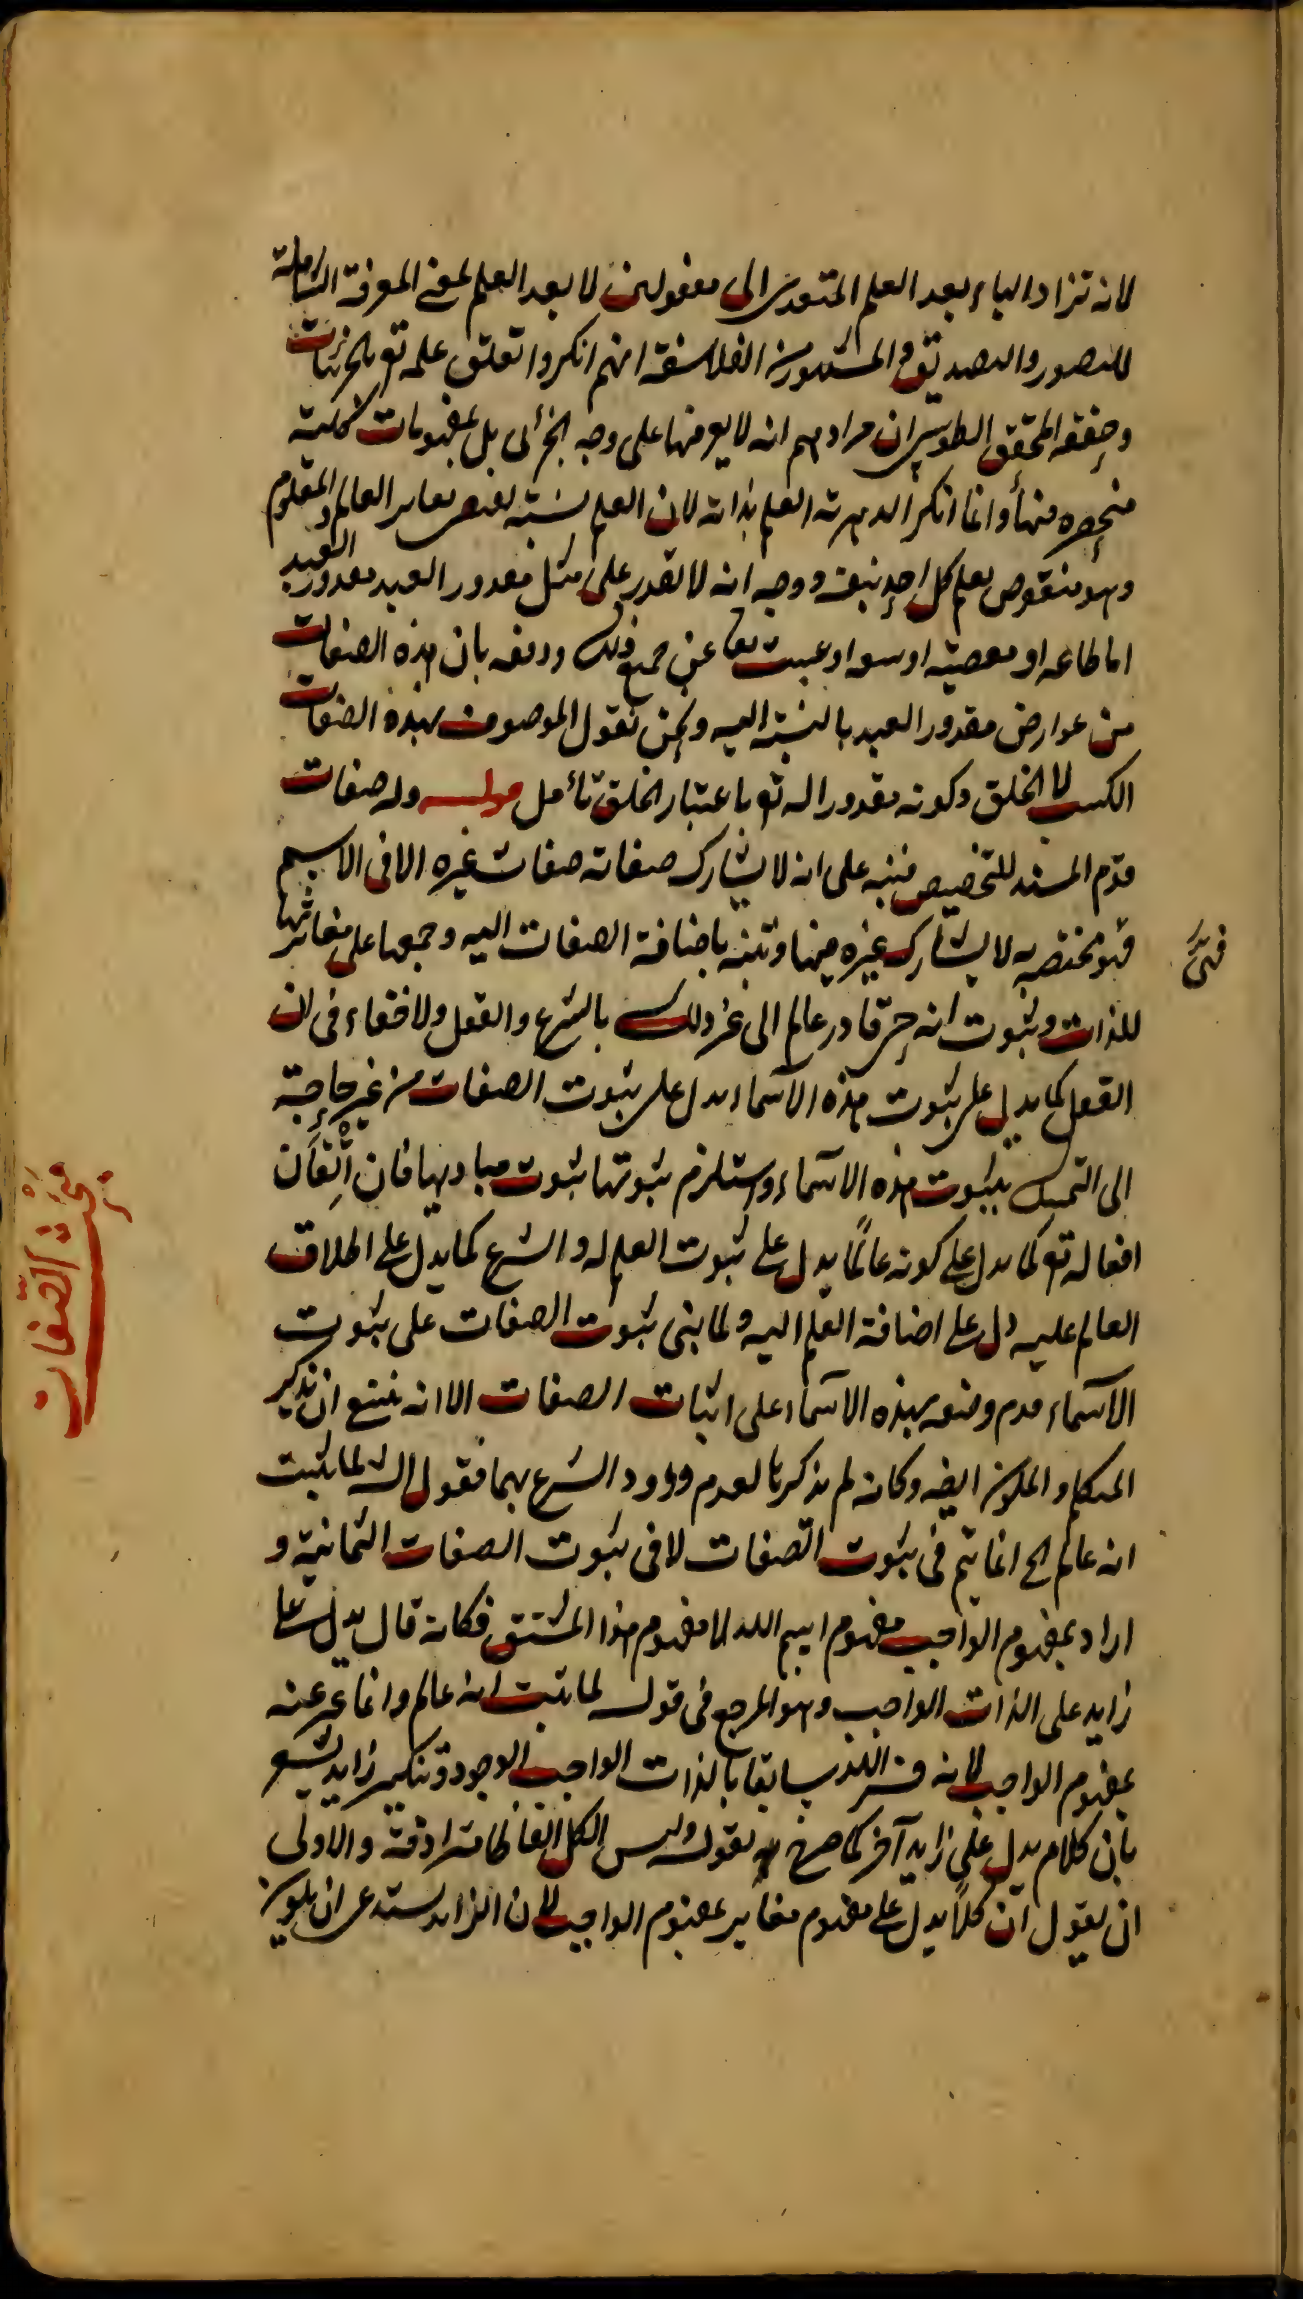 لانه تزاد الباء بعد العلم المتعدى الى مفعولين لا بعد العلم بمعنى المعرفة الشاملة
للتصور والتصديق والمشهور من الفلاسفة انهم انكروا تعلق علمه تع بالجزئيات
وحققه المحقق الطوسى ان مرادهم انه لا يعرفها على وجه الجزئى بل بمفهومات كلية
منحصرة فيها وانما انكر الدهرية العلم بذاته لان العلم نسبة يقتضى تغاير العالم والمعلوم
وهو منقوض بعلم كل احد بنفسه ووجه انه لا يقدر على مثل مقدور العبد مقدور العبد
اما طاعة او معصية او سهو او عبث تعا عن جميع ذلك ودفعه بان هذه الصفات
من عوارض مقدور العبد بالنسبة اليه ونحن نقول الموصوف بهذه الصفات
الكسب لا الخلق وكونه مقدورا له تع باعتبار الخلق تأمل قوله وله صفات
قدم المسند للتخصيص فنبه على انه لا يشارك صفاته صفات غيره الا فى الاسم
فهو مختص به لا يشارك غيره فيها ونبه باضافة الصفات اليه وجمعها على مغايرتها
للذات وثبوت انه حى قادر عالم الى غير ذلك بالشرع والعقل ولا خفاء فى ان
العقل كما يدل على ثبوت هذه الاسماء يدل على ثبوت الصفات من غير حاجة
الى التمسك بثبوت هذه الاسماء واستلزم ثبوتها ثبوت مباديها فان اتقان
افعاله تع كما يدل على كونه عالمًا يدل على ثبوت العلم له والشرع كما يدل على اطلاق
العالم عليه دل على اضافة العلم اليه ولما بنى ثبوت الصفات على ثبوت
الاسماء قدم وصفه بهذه الاسماء على اثبات الصفات الا انه ينبغى ان يذكر
المتكلم والمكون ايضه وكانه لم يذكرهما لعدم ورود الشرع بهما فقول الش لما يثبت
انه عالم الخ انما يتم فى ثبوت الصفات لا فى ثبوت الصفات الثمانية و
اراد بمفهوم الواجب مفهوم اسم الله لا مفهوم هذا المشتق فكانه قال يدل على
زايد على الذات الواجب وهو المرجع فى قوله لما ثبت انه عالم وانما عبر عنه
بمفهوم الواجب لانه فسر الله سابقا بالذات الواجب الوجود وتنكير زايد يشعر
بان كلام يدل على زايد آخر كما صرح به بقوله وليس الكل الفاظا مترادفة والاولى
ان يقول ان كلًا يدل على مفهوم مغاير بمفهوم الواجب لان الزايد يستدعى ان يكون
فهى
مبحث الصفات